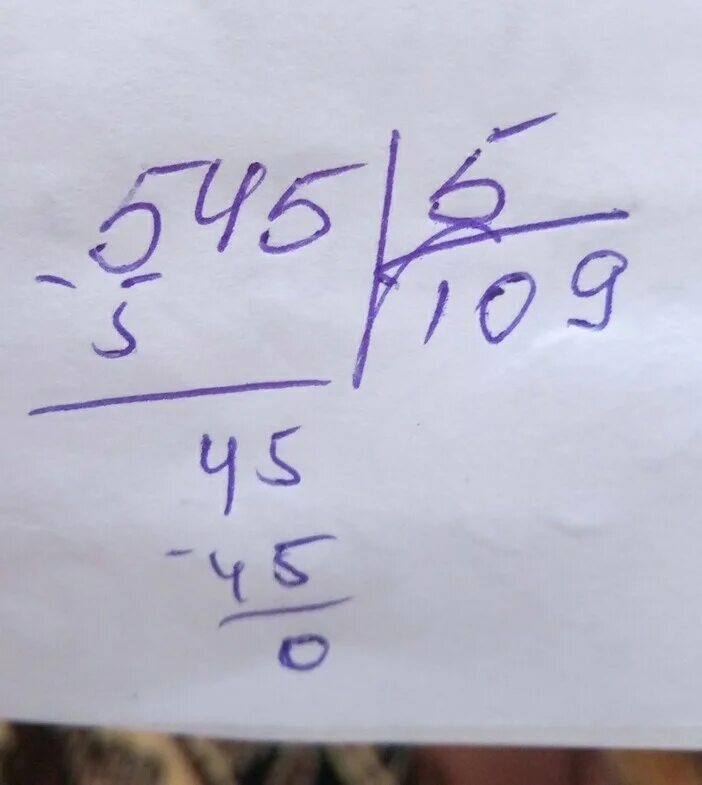 545 5
- 5 109
45
- 45
0